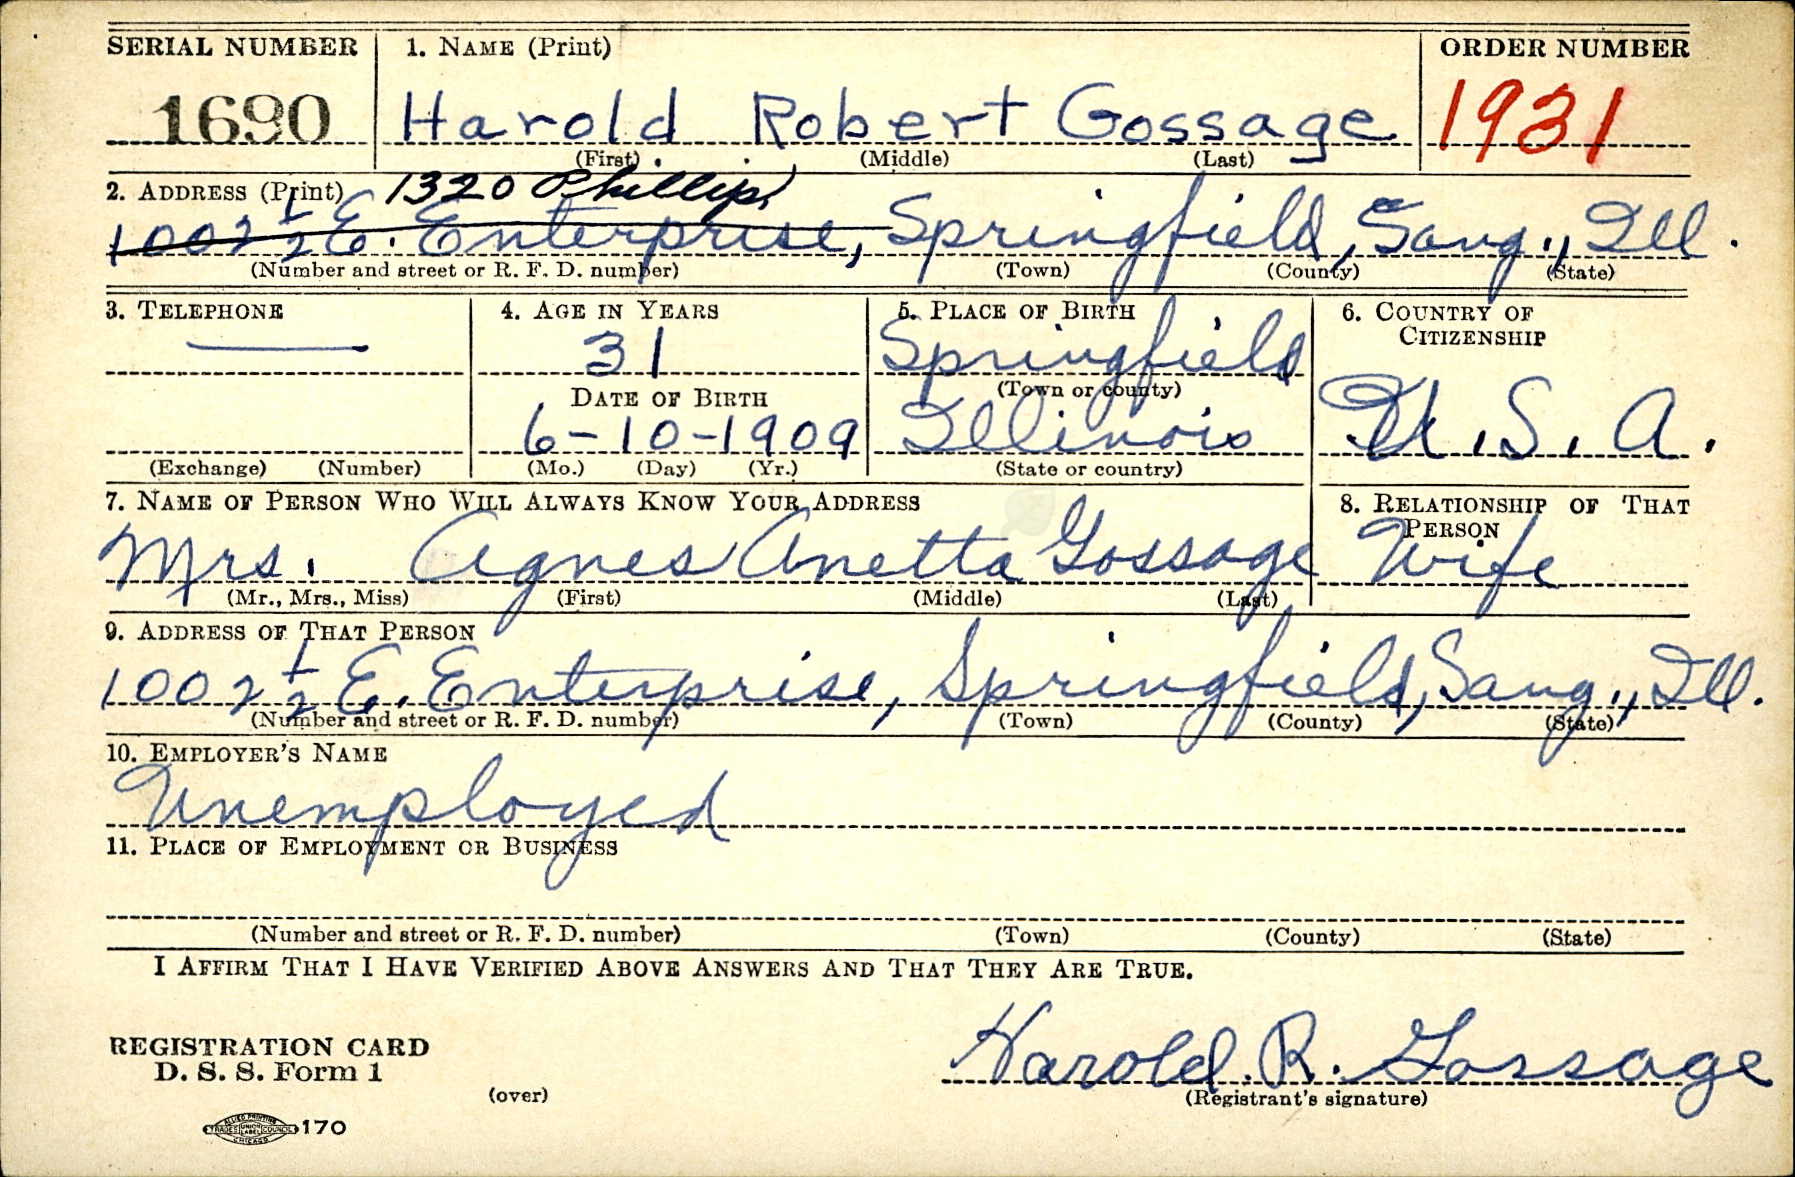 SERIAL NUMBER 1. NAME (Print) ORDER NUMBER
1690 Harold Robert Gossage 1931
(First) (Middle) (Last)
2. ADDRESS (Print) 1320 Phillips
1002 1/2 E. Enterprise, Springfield, Sang., Ill.
(Number and street or R. F. D. number) (Town) (County) (State)
3. TELEPHONE 4. AGE IN YEARS 5. PLACE OF BIRTH 6. COUNTRY OF
CITIZENSHIP
— 31 Springfield
(Town or county)
DATE OF BIRTH
6-10-1909 Illinois U.S.A.
(Exchange) (Number) (Mo.) (Day) (Yr.) (State or country)
7. NAME OF PERSON WHO WILL ALWAYS KNOW YOUR ADDRESS 8. RELATIONSHIP OF THAT
PERSON
Mrs. Agnes Anetta Gossage Wife
(Mr., Mrs., Miss) (First) (Middle) (Last)
9. ADDRESS OF THAT PERSON
1002 1/2 E. Enterprise, Springfield, Sang., Ill.
(Number and street or R. F. D. number) (Town) (County) (State)
10. EMPLOYER'S NAME
Unemployed
11. PLACE OF EMPLOYMENT OR BUSINESS
(Number and street or R. F. D. number) (Town) (County) (State)
I AFFIRM THAT I HAVE VERIFIED ABOVE ANSWERS AND THAT THEY ARE TRUE.
Harold R. Gossage
REGISTRATION CARD
D. S. S. Form 1
(over) (Registrant's signature)
ALLIED PRINTING
TRADES UNION LABEL COUNCIL
CHICAGO
170